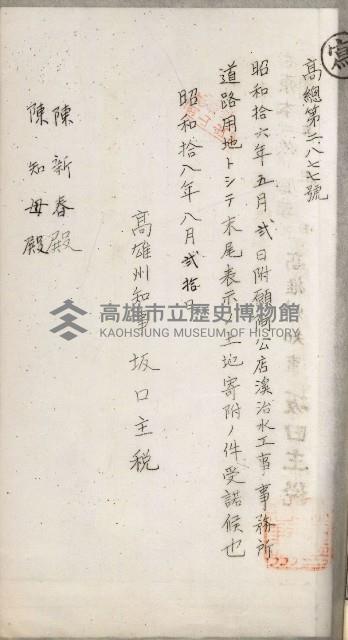 寫
高總第二八七七號
昭和拾六年五月貳日附願阿公店溪治水工事事務所
道路用地トシテ末尾表示ノ土地寄附ノ件受諾候也
昭和拾八年八月貳拾日
高雄州知事坂口主税
陳新春殿
陳知母殿
高雄市立歷史博物館
KAOHSIUNG MUSEUM OF HISTORY